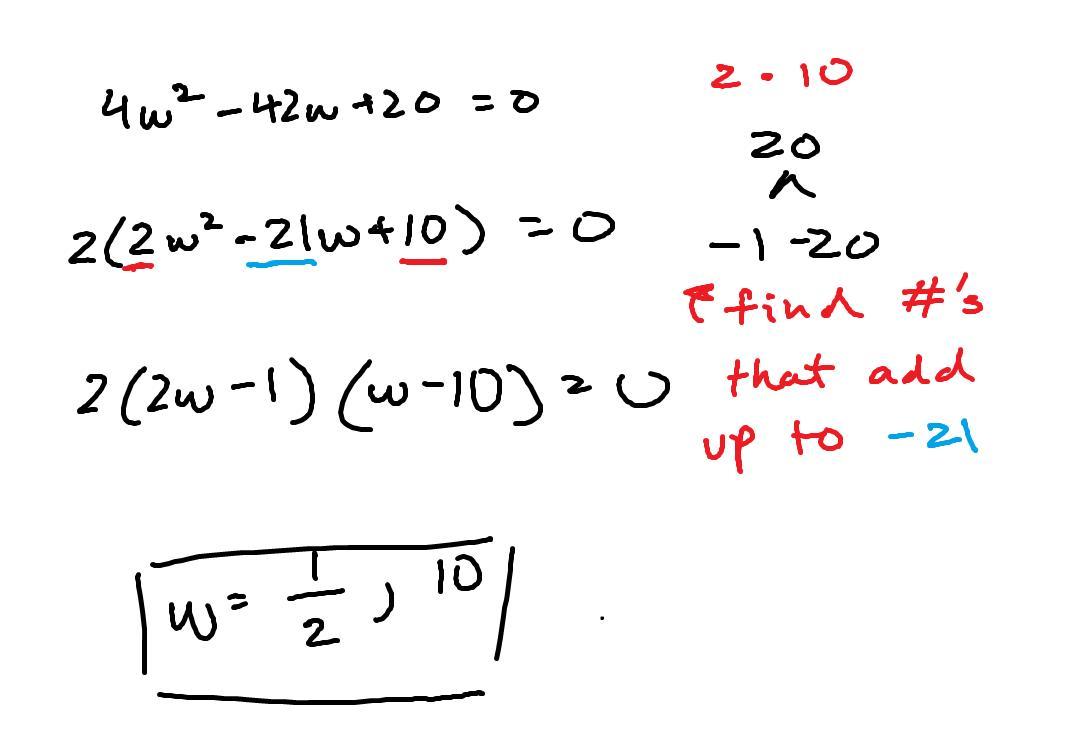 4w² - 42w + 20 = 0
2(2w² - 21w + 10) = 0
2(2w - 1)(w - 10) = 0
w = 1/2, 10
2 · 10
20
^
-1 -20
↑ find #'s
that add
up to -21